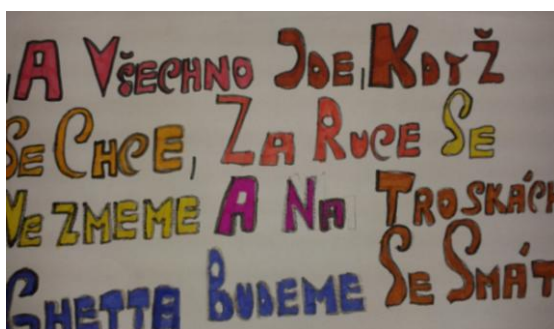 ,A VŠECHNO JDE, KDYŽ
SE CHCE, ZA RUCE SE
VEZMEME A NA TROSKÁCH
GHETTA BUDEME SE SMÁT